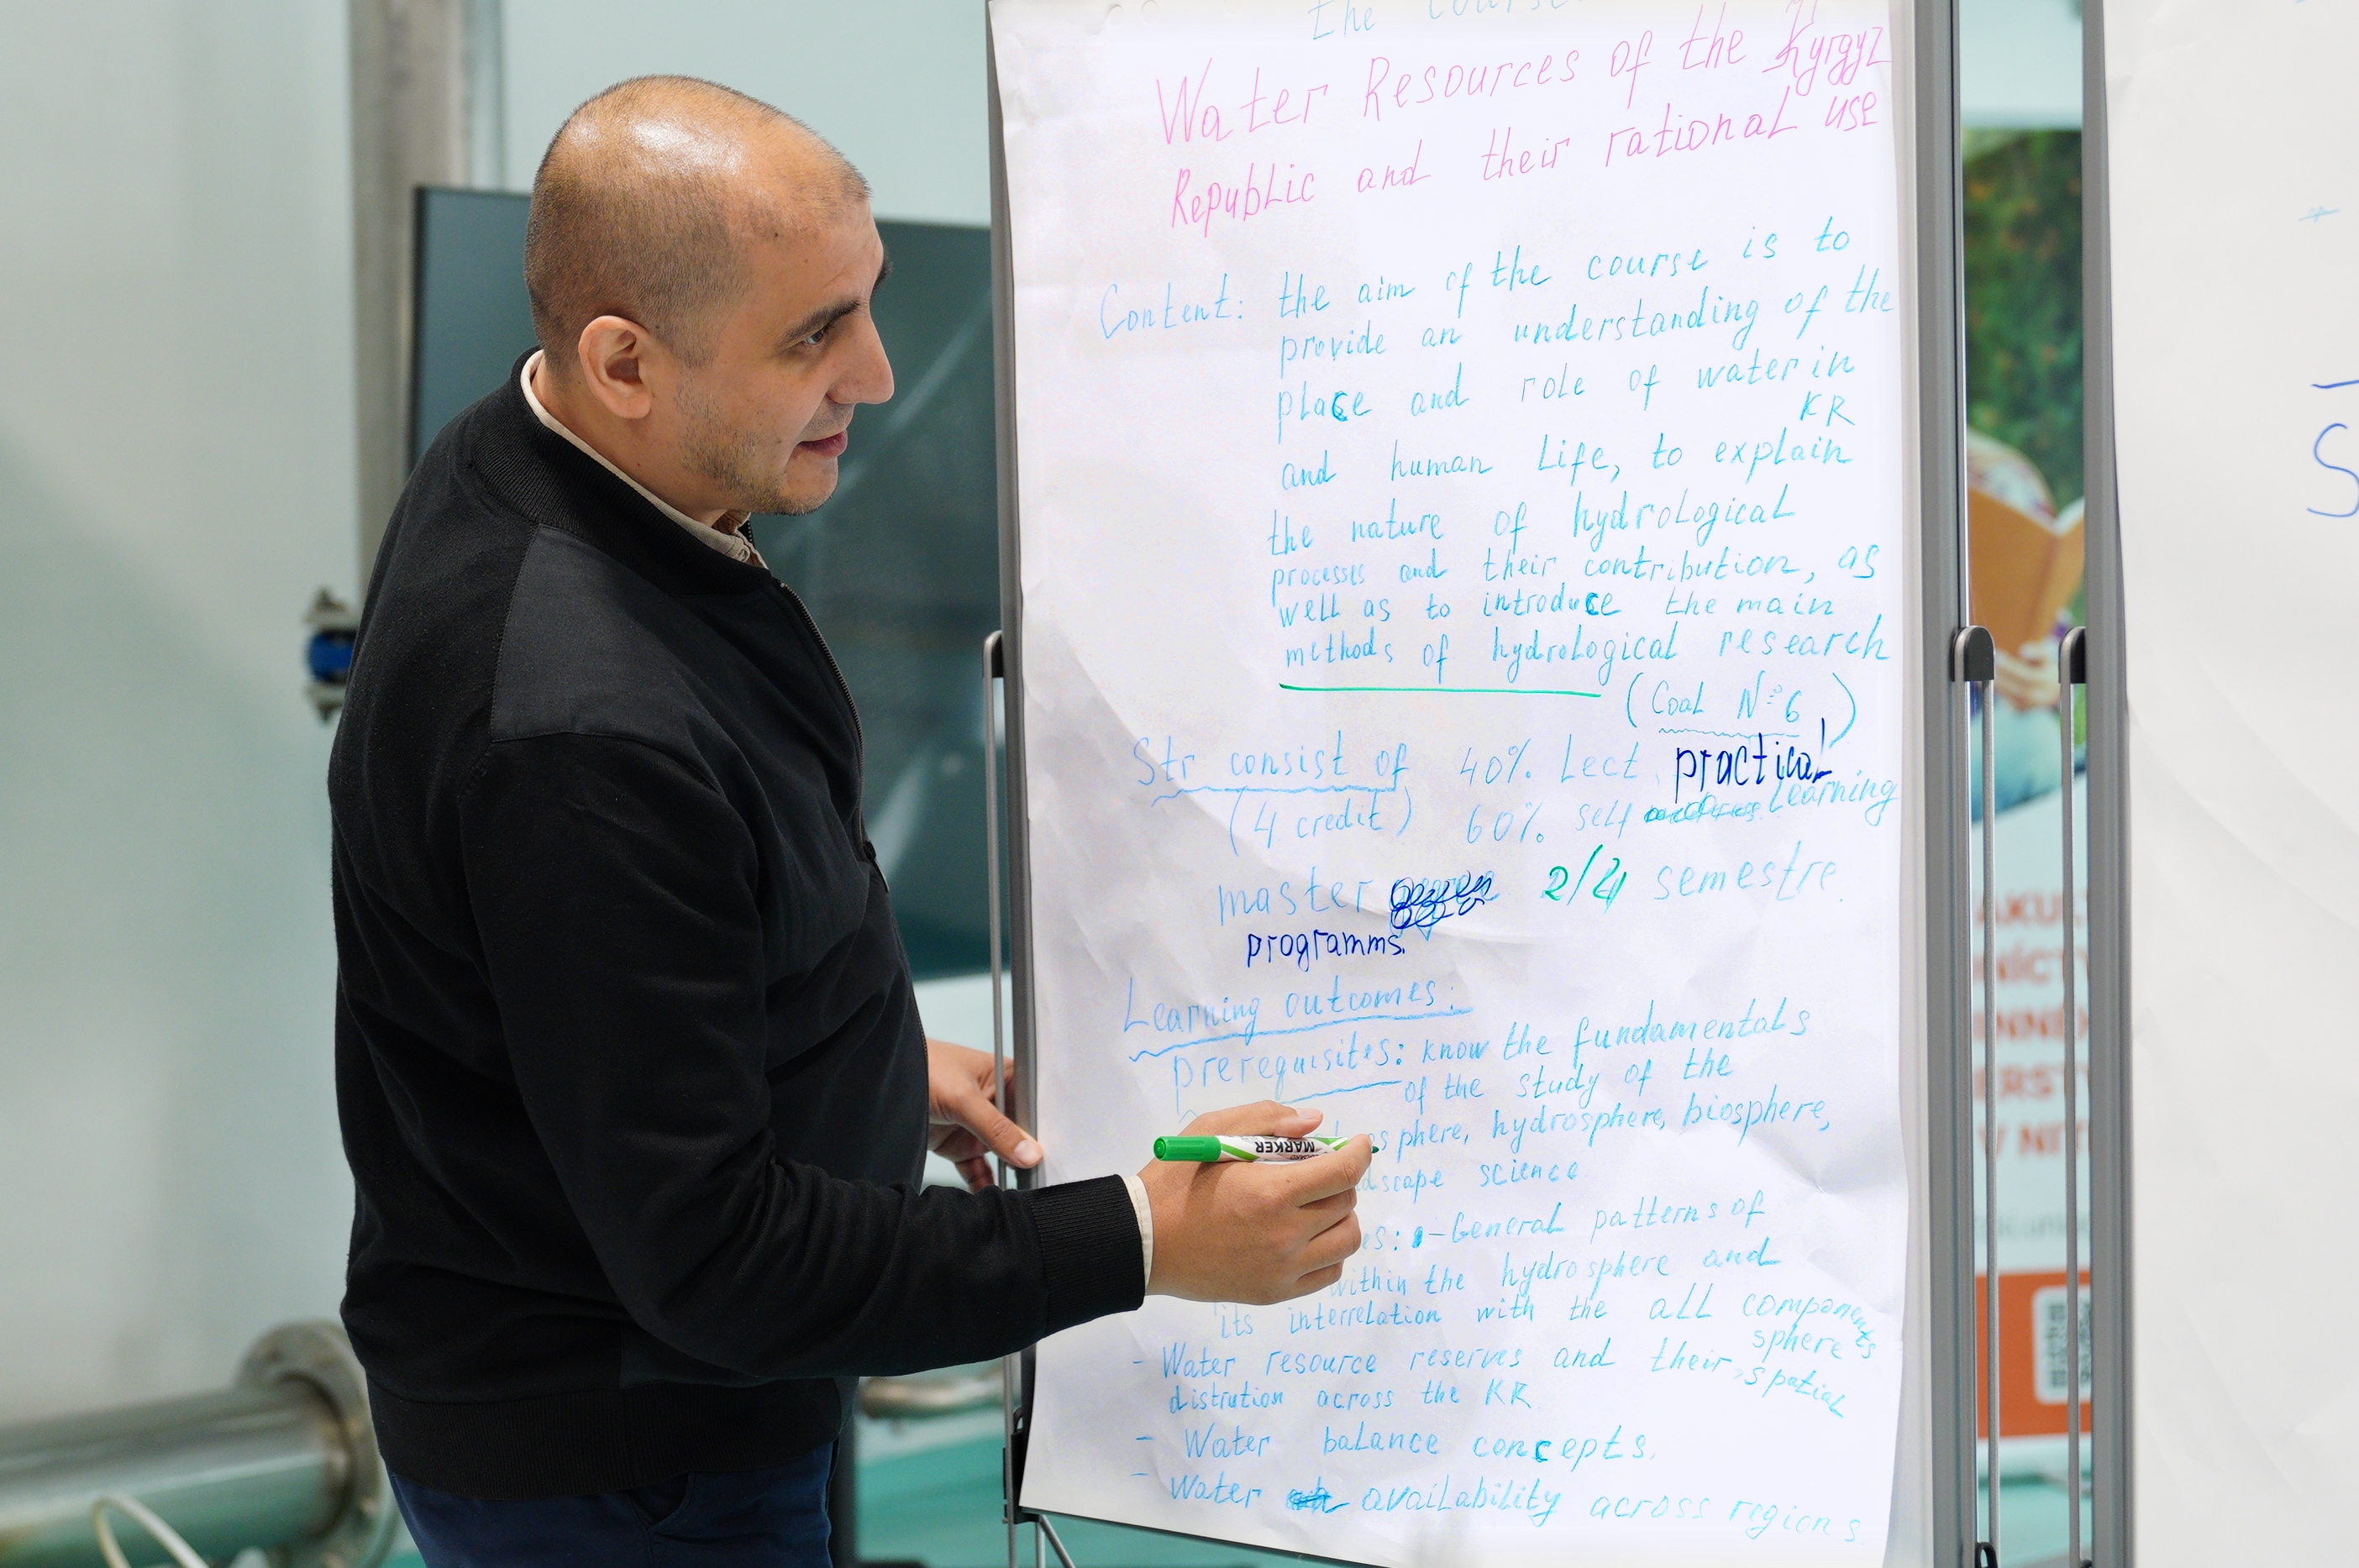 the course
Water Resources of the Kyrgyz
Republic and their rational use
Content: the aim of the course is to
provide an understanding of the
place and role of water in
KR
and human life, to explain
the nature of hydrological
processes and their contribution, as
well as to introduce the main
methods of hydrological research
(Coal N:6)
Str consist of 40% Lect, practical
(4 credit) 60% self learning
master 2/4 semestre.
programms.
Learning outcomes:
prerequisites: know the fundamentals
of the study of the
sphere, hydrosphere, biosphere,
dscape science
es: - General patterns of
within the hydrosphere and
its interrelation with the all components
sphere's
- Water resource reserves and their, spatial
distrution across the KR
- Water balance concepts.
- Water availability across regions
MARKER
AKU
NÍCT
INNÉ
ERSTY
V NIT
S